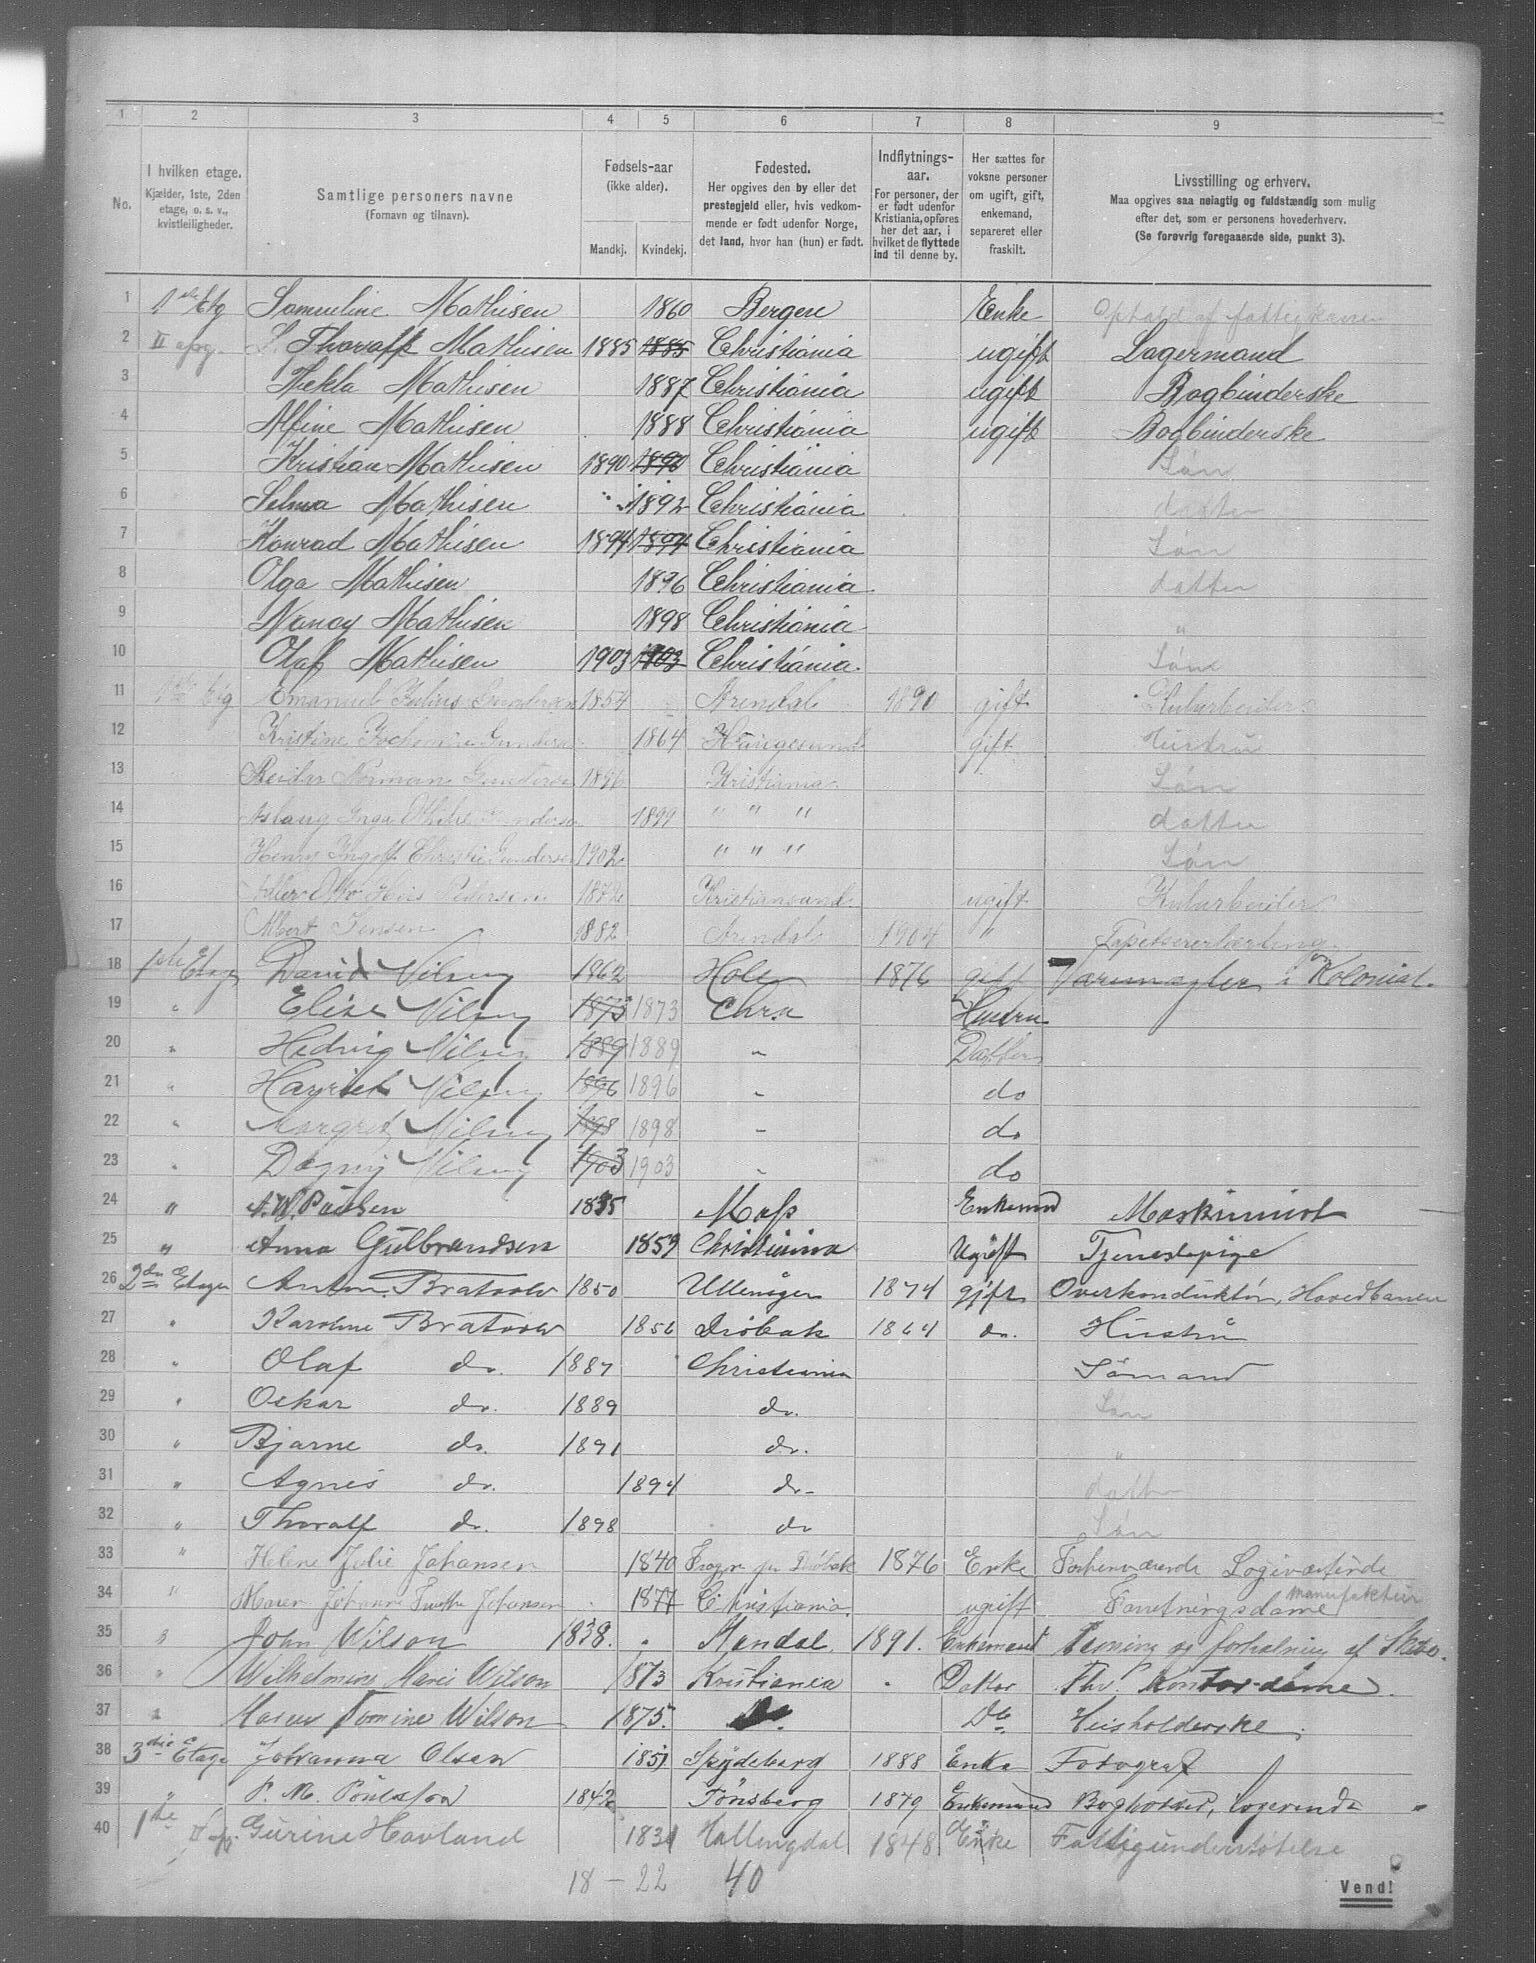 1 2 3 4 5 6 7 8 9
No.
I hvilken etage.
Kjælder, 1ste, 2den
etage, o. s. v.,
kvistleiligheder.
Samtlige personers navne
(Fornavn og tilnavn).
Fødsels-aar
(ikke alder).
Mandkj. Kvindekj.
Fødested.
Her opgives den by eller det
prestegjeld eller, hvis vedkom-
mende er født udenfor Norge,
det land, hvor han (hun) er født.
Indflytnings-
aar.
For personer, der
er født udenfor
Kristiania, opføres
her det aar, i
hvilket de flyttede
ind til denne by.
Her sættes for
voksne personer
om ugift, gift,
enkemand,
separeret eller
fraskilt.
Livsstilling og erhverv.
Maa opgives saa nøiagtig og fuldstændig som mulig
efter det, som er personens hovederhverv.
(Se forøvrig foregaaende side, punkt 3).
1 1ste Etg Samuline Mathisen 1860 Bergen Enke Ophold af
2 II opg. Thoralf Mathisen 1885 1885 Christiania ugift Lagermand
3 Thekla Mathisen 1887 Christiania ugift Bogbinderske
4 Alfine Mathisen 1888 Christiania ugift Bogbinderske
5 Kristian Mathisen 1890 1890 Christiania Søn
6 Selma Mathisen 1892 Christiania datter
7 Konrad Mathisen 1894 1894 Christiania Søn
8 Olga Mathisen 1896 Christiania datter
9 Nancy Mathisen 1898 Christiania "
10 Olaf Mathisen 1903 1903 Christiania. Søn
11 1ste Etg Emanuel Julius Gundersen 1854 Arendal 1890 gift
12 Kristine Gundersen 1864 Haugesund gift Hustru
13 Reidar Norman Gundersen 1896 Kristiania Søn
14 Aslaug Inga Gundersen 1899 " " " datter
15 Henry Ingolf Christie Gundersen 1902 " " " Søn
16 Otto Pedersen 1872 Kristiansand ugift
17 Albert Jensen 1882 Arendal 1904 " Tapetsererlærling
18 1ste Etage David 1862 Hole 1876 gift Varemægler i Kolonial.
19 " Elise 1873 1873 Chra Hustru
20 " Hedvig 1889 1889 " Datter
21 " Harriet 1896 1896 " do
22 " Margret 1898 1898 " do
23 " Dagny 1903 1903 " do
24 " A. W. Paulsen 1835 Moss Enkemand Maskinist
25 " Anna Gulbrandsen 1859 Christiania Ugift Tjenestepige
26 2den Etage Anton Bratvold 1850 Ullensager 1874 gift Overkonduktør, Hovedbanen
27 " Karoline Bratvold 1856 Drøbak 1864 do. Hustru
28 " Olaf do. 1887 Christiania Sømand
29 " Oskar do. 1889 do. Søn
30 " Bjarne do. 1891 do. "
31 " Agnes do. 1894 do. datter
32 " Thoralf do. 1898 do Søn
33 " Helene Julie Johansen 1840 Frogn pr Drøbak 1876 Enke Forhenværende Logivertinde
34 " Maren Johanne Johansen 1877 Christiania. ugift Forretningsdame manufaktur
35 " John Wilson 1838. " Mandal 1891. Enkemand af
36 " Wilhelmine Marie Wilson 1873 Kristiania " Datter Fhv. Kontordame.
37 " Maren Tomine Wilson 1875. Do. Do Husholderske.
38 3die Etage Johanna Olsen 1851 Spydeberg 1888 Enke Fotograf
39 " P. M. 1842 Tønsberg 1879 Enkemand Bogholder, logerende "
40 1ste II opg. Gurine Havland 1831 Hallingdal 1848 Enke Fattigunderstøtelse
18 – 22 40
Vend!